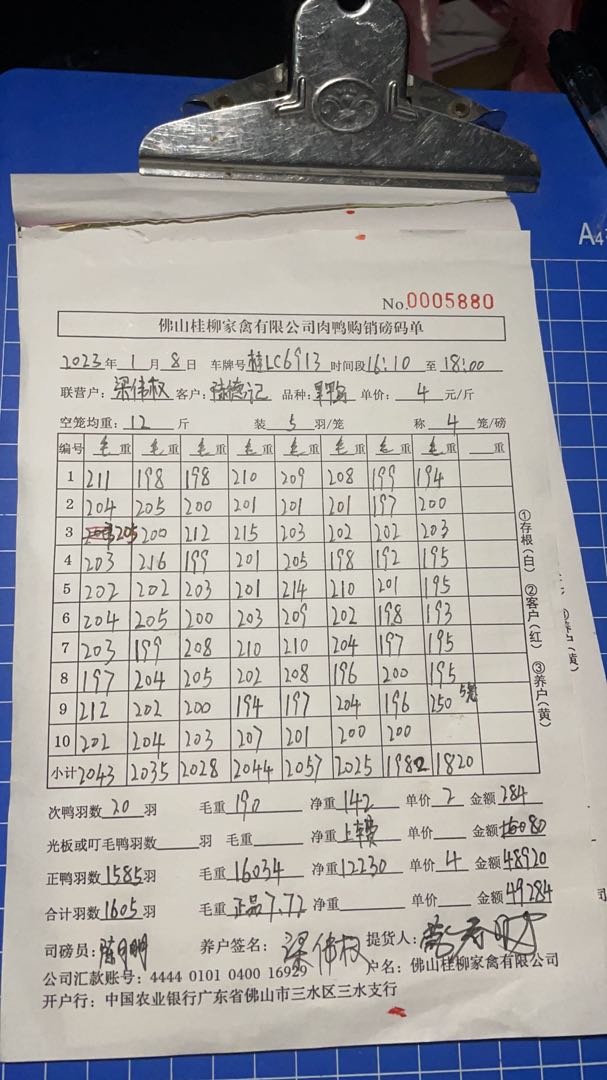 No.0005880
佛山桂柳家禽有限公司肉鸭购销磅码单
2023年 1 月 8 日 车牌号 桂LC6913 时间段 16:10 至 18:00
联营户: 梁伟权 客户: 德记 品种: 单价: 4 元/斤
空笼均重: 12 斤 装 5 羽/笼 称 4 笼/磅
编号 毛重 毛重 毛重 毛重 毛重 毛重 毛重 毛重 重
1 211 198 198 210 209 208 199 194
2 204 205 200 201 201 201 197 200
3 205 200 212 215 203 202 202 203
4 203 216 199 201 205 198 192 195
5 202 202 203 201 214 210 201 195
6 204 205 200 203 209 202 198 193
7 203 199 208 210 210 204 197 195
8 197 204 205 202 208 196 200 195
9 212 202 200 194 197 204 196 250 5笼
10 202 204 203 207 201 200 200
小计 2043 2035 2028 2044 2057 2025 1982 1820
次鸭羽数 20 羽 毛重 190 净重 142 单价 2 金额 284
光板或叮毛鸭羽数 羽 毛重 净重 上车费 单价 金额 80
正鸭羽数 1585 羽 毛重 16034 净重 12230 单价 4 金额 48920
合计羽数 1605 羽 毛重 正品7.72 净重 单价 金额 49284
司磅员: 养户签名: 梁伟权 提货人:
公司汇款账号: 4444 0101 0400 16929 户名: 佛山桂柳家禽有限公司
开户行: 中国农业银行广东省佛山市三水区三水支行
①存根(白) ②客户(红) ③养户(黄)
A4